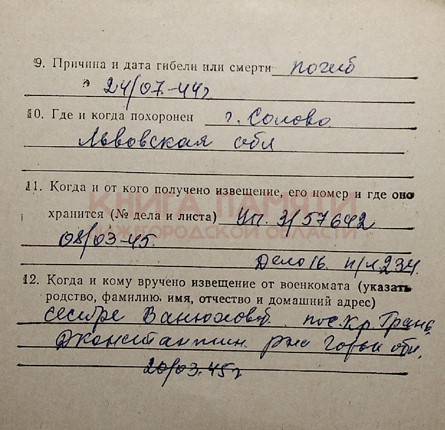 9. Причина и дата гибели или смерти погиб
24/07-44г
10. Где и когда похоронен г. Солово
Львовская обл
11. Когда и от кого получено извещение, его номер и где оно
КНИГА ПАМЯТИ
хранится (№ дела и листа) Уп. 3/57642
НИЖЕГОРОДСКОЙ ОБЛАСТИ
08/03-45.
Дело 16. п/л 234.
12. Когда и кому вручено извещение от военкомата (указать
родство, фамилию, имя, отчество и домашний адрес)
сестре пос. Кр. Грань,
Дконстантин. р-на Горьк обл.
20/03.45г